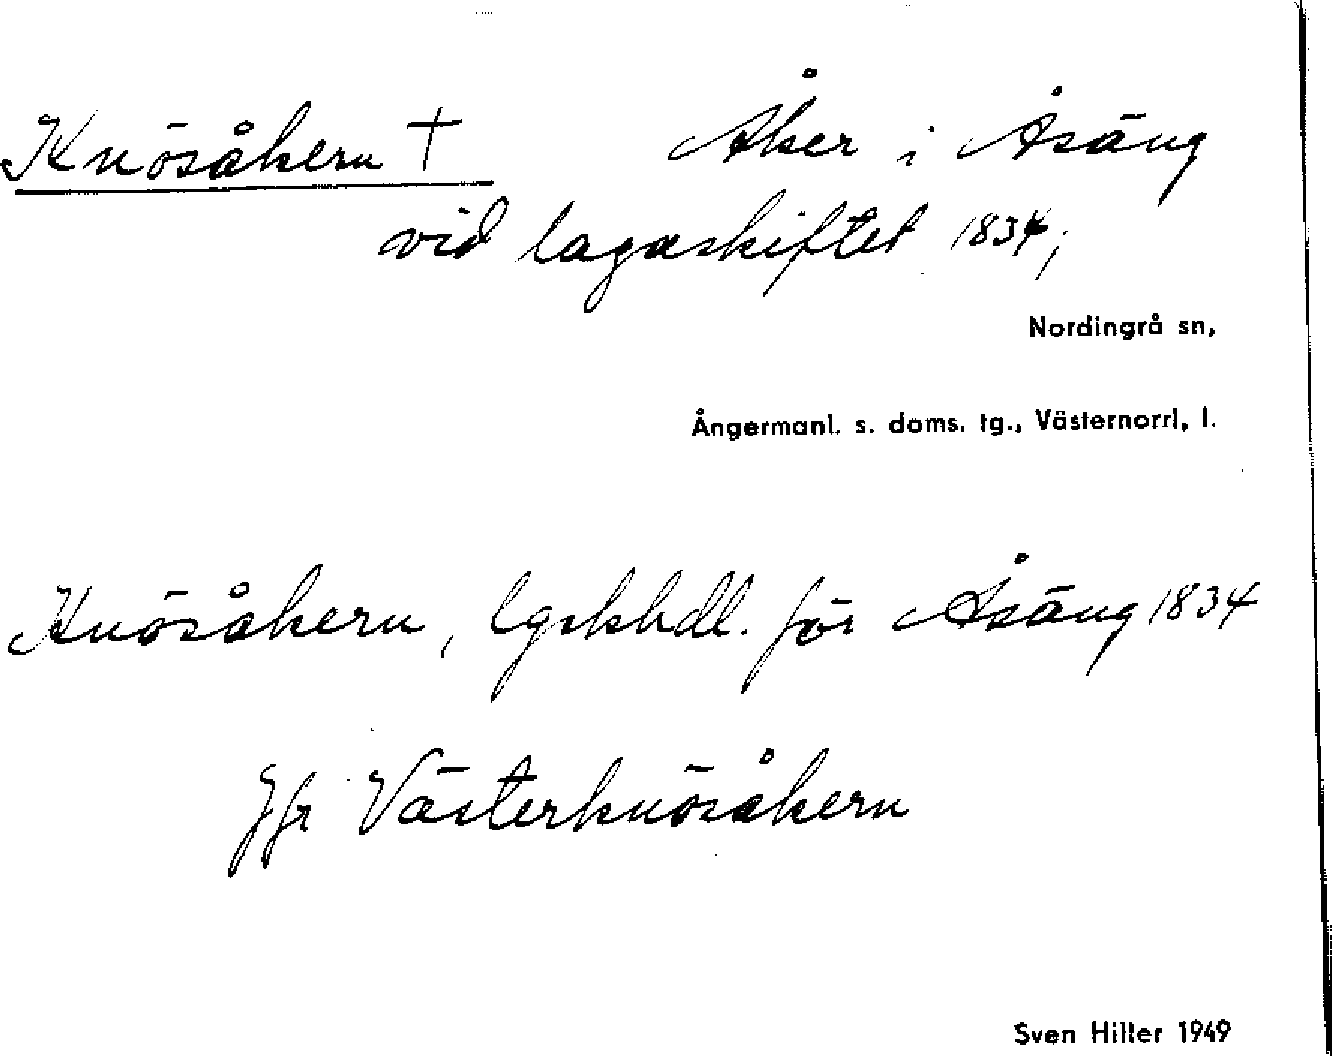 Knösåkern † Åker i Åsäng
vid lagaskiftet 1834,
Nordingrå sn,
Ångermanl. s. doms. tg., Västernorrl, l.
Knösåkern, lgskhdl. för Åsäng 1834
Jfr Västerknösåkern
Sven Hiller 1949